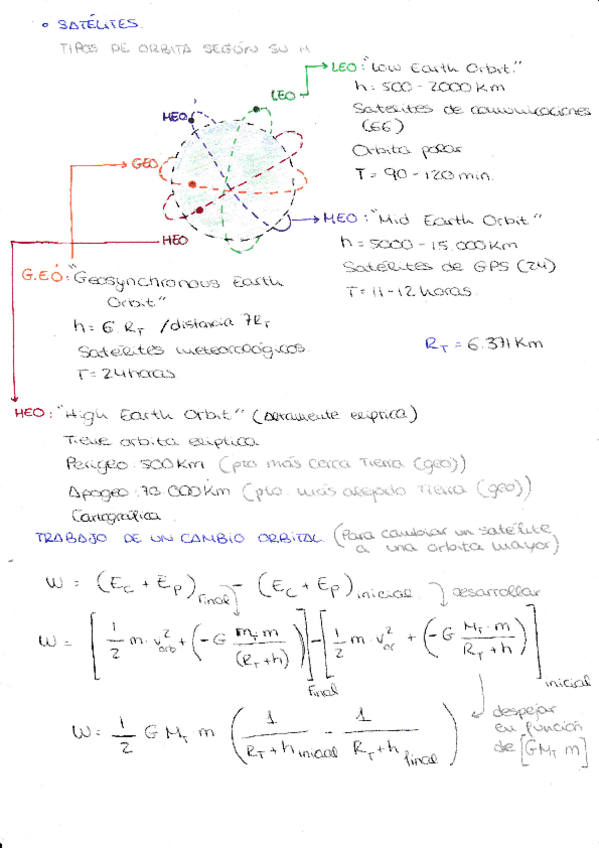 • SATÉLITES.
TIPOS DE ORBITA SEGÚN SU H
LEO: "Low Earth Orbit."
h: 500 - 2000 Km
Satélites de comunicaciones
(66)
Orbita polar
T = 90 - 120 min.
LEO
MEO
GEO
HEO
MEO: "Mid Earth Orbit"
h = 5000 - 15.000 Km
Satélites de GPS (24)
T = 11 - 12 horas.
G.EO: "Geosynchronous Earth
Orbit"
h = 6 R_T / distancia 7R_T
Satélites meteorológicos.
T = 24 horas
R_T = 6.371 Km
HEO: "High Earth Orbit" (Altamente elíptica)
Tiene orbita elíptica
Perigeo: 500 Km (pto más cerca Tierra (geo))
Apogeo: 70.000 Km (pto. más alejado Tierra (geo))
Cartográfica
TRABAJO DE UN CAMBIO ORBITAL (Para cambiar un satélite
a una orbita mayor)
W = (E_C + E_P)_final - (E_C + E_P)_inicial desarrollar
W = [1/2 m · v²_orb + (-G m_T m / (R_T + h))]_Final - [1/2 m · v²_or + (-G M_T · m / R_T + h)]_inicial
despejar
en función
de [GM_T m]
W = 1/2 G M_T m (1 / R_T + h_inicial - 1 / R_T + h_final)